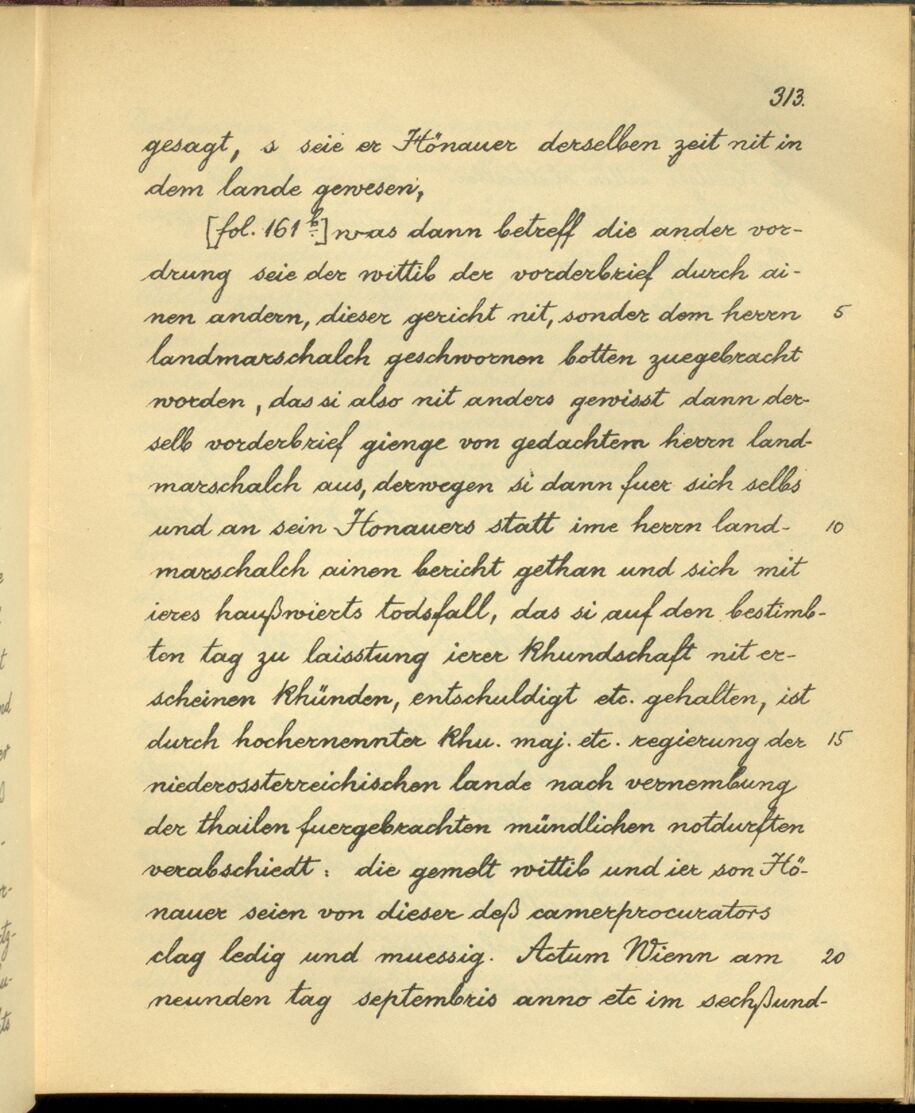 313.
gesagt, s seie er Hönauer derselben zeit nit in
dem lande gewesen,
[fol. 161 b] was dann betreff die ander vor-
drung seie der wittib der vorderbrief durch ai-
nen andern, dieser gericht nit, sonder dem herrn 5
landmarschalch geschwornen botten zuegebracht
worden, das si also nit anders gewisst dann der-
selb vorderbrief gienge von gedachtem herrn land-
marschalch aus, derwegen si dann fuer sich selbs
und an sein Honauers statt ime herrn land- 10
marschalch ainen bericht gethan und sich mit
ieres haußwierts todsfall, das si auf den bestimb-
ten tag zu laisstung ierer khundschaft nit er-
scheinen khünden, entschuldigt etc. gehalten, ist
durch hochernennter khu. maj. etc. regierung der 15
niederossterreichischen lande nach vernembung
der thailen fuergebrachten mündlichen notdurften
verabschiedt: die gemelt wittib und ier son Hö-
nauer seien von dieser deß camerprocurators
clag ledig und muessig. Actum Wienn am 20
neunden tag septembris anno etc im sechßund-